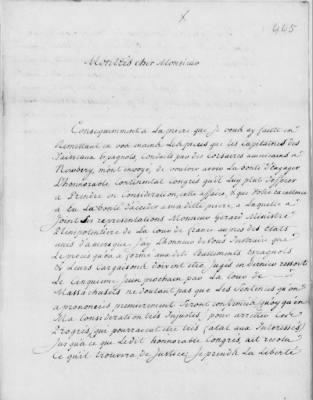 445
Mon très cher Monsieur
Consequemment a La priere que je vous ay faitte en
Remettant en vos mains Les pieces que les capitaines des
Vaisseaux Espagnols, conduits par des corsaires americains a
Newbery, mont envoyé, de vouloir avoir La bonté d'Engager
L'honorable Continental congrès qu'il Luy plut d'offrir
a Prendre en Consideration cette affaire, & que Votre Excellence
a Eu La bonté d'acceder a ma ditte priere, a Laquelle a
Joint Ses representations Monsieur Gerard Ministre
Plenipotentiere de La Cour de france aupres des Etats
unis d'amerique J'ay L'honneur de Vous Instruire que
Le proces qu'on a formé aux dits Batiments Espagnols
& Leurs Cargaisons doivent etre Jugés en Dernier ressort
Le Cinquieme Juin prochain par La Cour de
Massachusets ne doutant pas que Les Sentences qu'on
a prononcés premierement Seront confirmées, quoy qu'en
Ma consideration très Injustes, pour arretter Les
Progrès, qui pourraient etre très fatal aux Interessés
Jusqu'a ce que Le dit honorable Congrès ait resolu
Ce qu'il trouvera de Justice, Je prends La Liberté